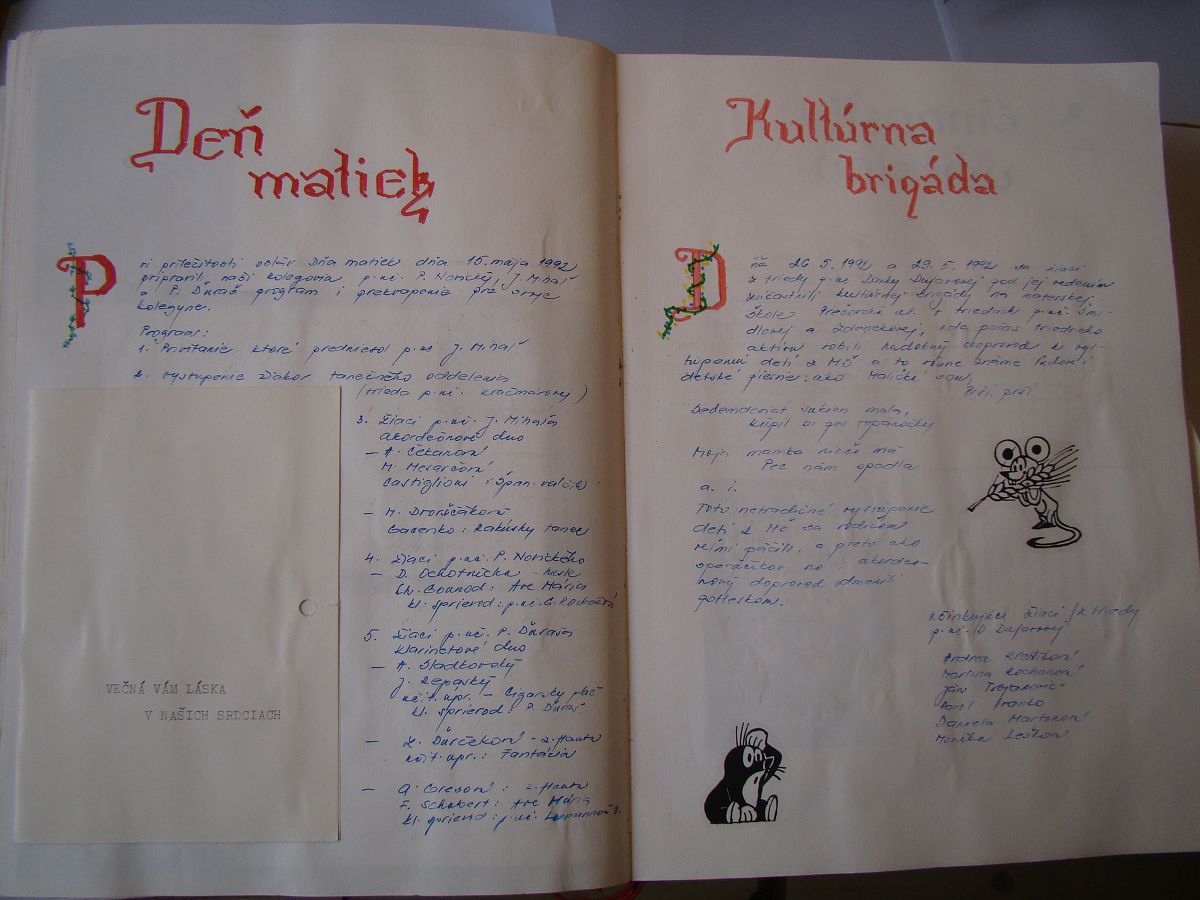 Deň
matiek
Pri príležitosti osláv Dňa matiek dňa 15. mája 1992
pripravili naši kolegovia p. uč. P. Novický, J. Mihaš
a P. Ďuraš program i prekvapenie pre svoje
kolegyne.
Program:
1. Privítanie ktoré predniesol p. uč. J. Mihaš
2. vystúpenie žiakov tanečného oddelenia
(trieda p. uč. Kračmárovej)
3. Žiaci p. uč. J. Mihaša
akordeónové duo
– A. Čekanová
M.
Castiglioni: Špan. valčík
– M. Dvorščáková
Gavenko: Rakúsky tanec
4. Žiaci p. uč. P. Novického
– D. Ochotnícka – husle
Ch. Gounod: Ave Mária
kl. sprievod: p. uč.
5. Žiaci p. uč. P. Ďuraša
klarinetové duo
– A. Sladkovský
J. Repaský
uč. t. úpr. – Cigánsky plač
kl. sprievod: P. Ďuraš
– Ľ. Ďurčeková – z. flauta
uč. t. úpr.: Fantázia
– z. flauta
F. Schubert: Ave Mária
kl. sprievod: p. uč.
VEČNÁ VÁM LÁSKA
V NAŠICH SRDCIACH
Kultúrna
brigáda
Dňa 26. 5. 1992 a 29. 5. 1992 sa žiaci
z triedy p. uč. Danky Dujavovej pod jej vedením
zúčastnili kultúrnej brigády na materskej
škole Prešovská ul. v triedach p. uč. Šmi-
dlovej a , kde počas triedneho
aktívu robili hudobný doprovod k vys-
túpeniu detí z MŠ a to rôzne známe ľudové
detské piesne: ako Maličká som,
Prší, prší
Dedemdeniat sukien mala,
Kúpil si ges topánočky
Moja mamka nevie má
Pec nám spadla
a. i.
Toto netradičné vystúpenie
detí z MŠ sa rodičom
veľmi páčilo, a preto ako
na akordeó-
nový doprovod odmenili
potleskom.
účinkujúci žiaci /z triedy
p. uč. D. Dujavovej
Andrea
Martina Kochanová
Ján Trojanovič
Karol Franko
Daniela Martonová
Monika Lešková